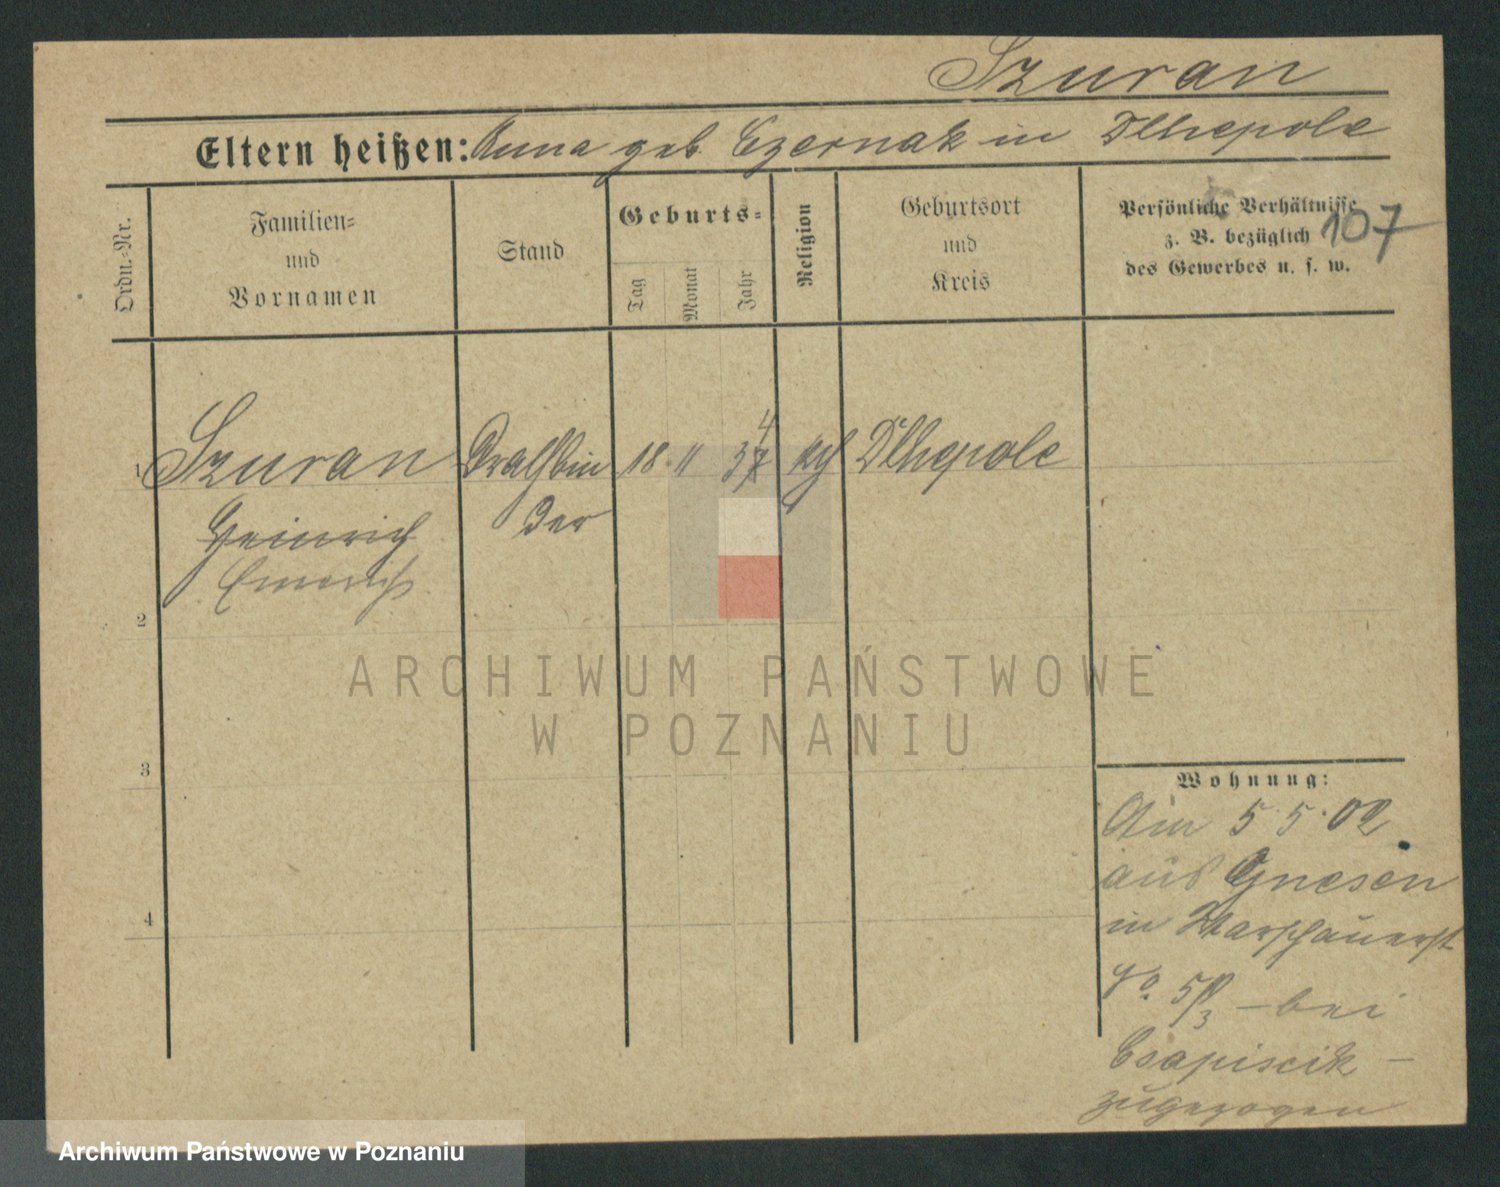 Szuran
Eltern heißen: Anna geb Czernak in Dlhepole
Ordn.-Nr.
Familien-
und
Vornamen
Stand
Geburts-
Tag
Monat
Jahr
Religion
Geburtsort
und
Kreis
Persönliche Verhältnisse
z. B. bezüglich
des Gewerbes u. s. w.
107
4
1 Szuran Drathbin 18 11 37 kth Dlhepole
Heinrich der
Emerich
2
3
4
Wohnung:
Am 5.5.02
aus Gnesen
in Warschauerst
bei
Csapiscik
zugezogen
ARCHIWUM PAŃSTWOWE
W POZNANIU
Archiwum Państwowe w Poznaniu